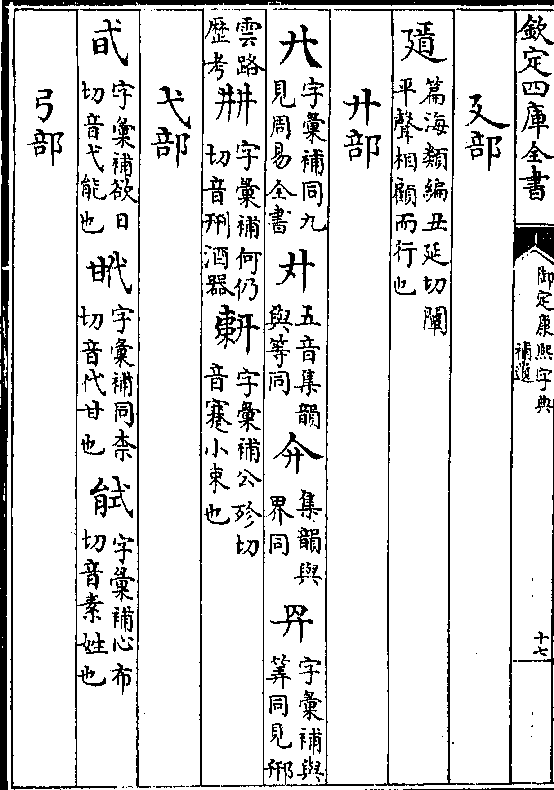 欽定四庫全書
御定康熙字典
補遺
十七
廴部
篇海類編丑延切闡
平聲相顧而行也
廾部
字彙補同九
見周易全書
五音集韻
與等同
集韻與
界同
字彙補與
筭同見邢
雲路
歷考
字彙補何仍
切音刑酒器
字彙補公殄切
音蹇小束也
弋部
字彙補欲日
切音弋能也
字彙補同柰
切音代甘也
字彙補心布
切音素姓也
弓部